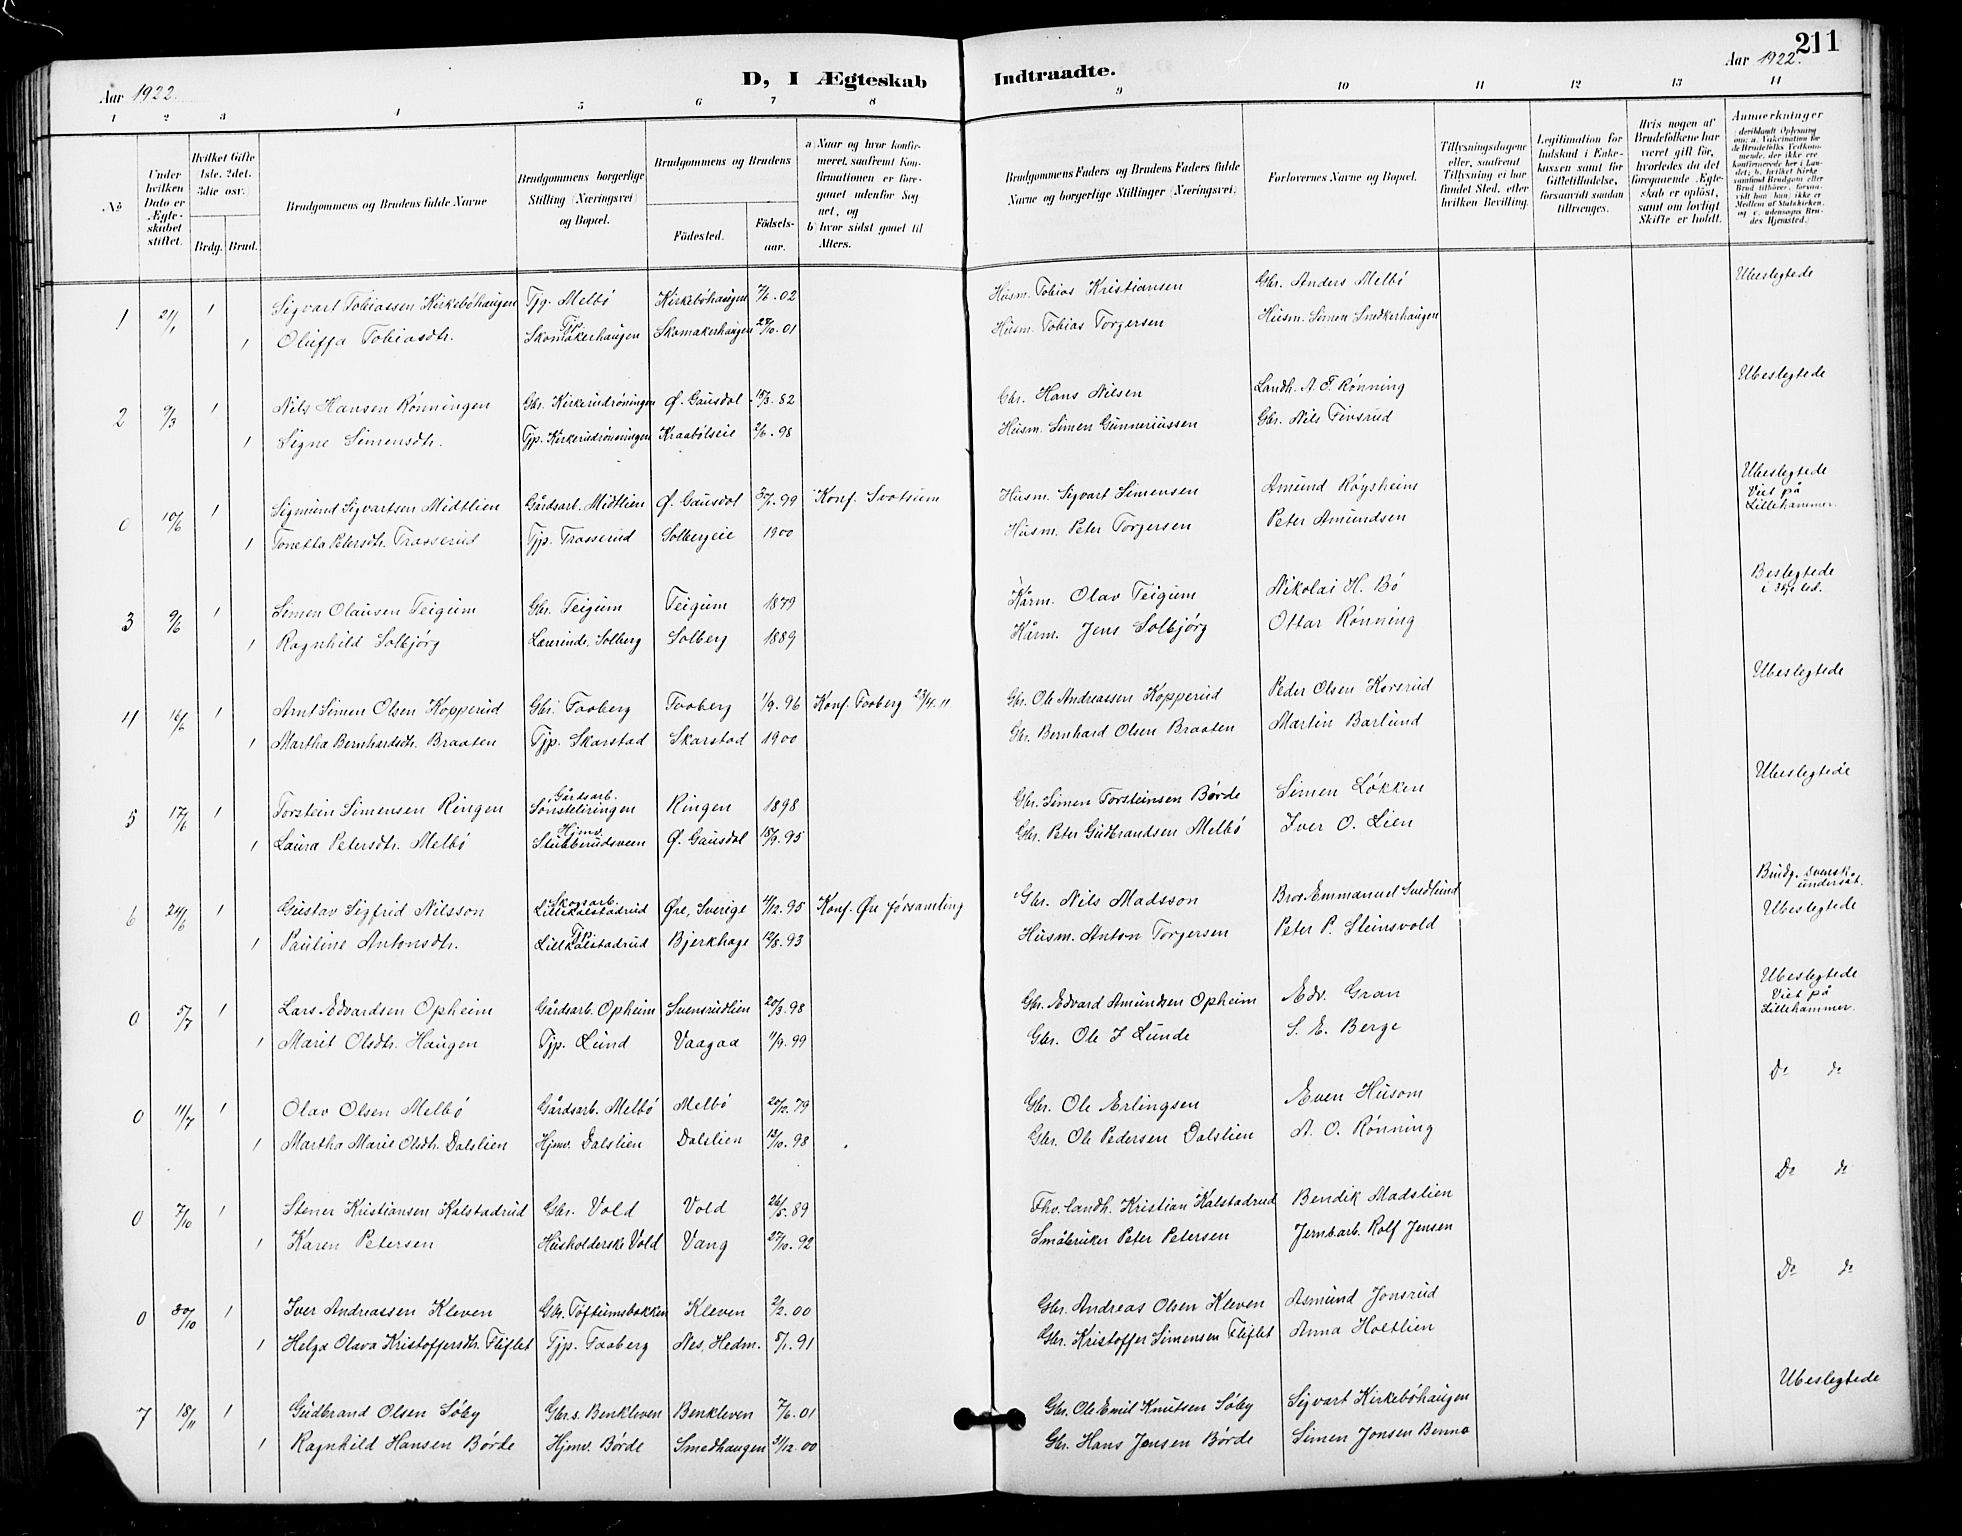 Aar 1922. D, I Ægteskab Indtraadte. Aar 1922. 211
1 2 3 4 5 6 7 8 9 10 11 12 13 14
No
Under hvilken Dato er Ægteskabet stiftet.
Hvilket Gifte 1ste. 2det. 3die osv.
Brdg. Brud.
Brudgommens og Brudens fulde Navne
Brudgommens borgerlige Stilling (Næringsvei) og Bopæl.
Brudgommens og Brudens
Födested.
Födselsaar.
a) Naar og hvor konfirmeret, saafremt Konfirmationen er foregaaet udenfor Sognet, og
b) hvor sidst gaaet til Alters.
Brudgommens Faders og Brudens Faders fulde Navne og borgerlige Stillinger (Næringsvei).
Forlovernes Navne og Bopæl.
Tillysningsdagene eller, saafremt Tillysning ei har fundet Sted, efter hvilken Bevilling.
Legitimation for Indskud i Enkekassen samt for Giftetilladelse, forsaavidt saadan tiltrænges.
Hvis nogen af Brudefolkene har været gift för, hvorledes da det foregaaende Ægteskab er oplöst, samt om lovligt Skifte er holdt.
Anmærkninger
1 21/1 1 Sigvart Tobiassen Kirkebøhaugen Tjg. Melbø Kirkebøhaugen 7/6. 02 Husm. Tobias Kristiansen Gbr. Anders Melbø Ubeslegtede
1 Oluffa Tobiasdtr. Tjp. Skomakerhaugen Skomakerhaugen 27/10. 01 Husm. Tobias Torgersen Husm. Simen Snekkerhaugen
2 9/3 1 Nils Hansen Rønningen Gbr. Kirkerudrøningen Ø. Gausdal 15/3. 82 Gbr. Hans Nilsen Landh. A. F. Rønning Ubeslegtede
1 Signe Simensdtr. Tjp. Kirkerudrønningen Kraabølseie 2/6. 98 Husm. Simen Gunneriussen Gbr. Nils Finsrud
0 10/6 1 Sigmund Sigvartsen Midtlien Gårdsarb. Midtlien Ø. Gausdal 30/1. 99 Konf. Svatsum Husm. Sigvart Simensen Amund Røysheim Ubeslegtede Viet på Lillehammer.
1 Tonetta Petersdtr. Traaserud Tjp. Traaserud Solbergeie 1900 Husm. Peter Torgersen Peter Amundsen
3 9/6 1 Simen Olausen Teigum Gbr. Teigum Teigum 1879 Kårm. Olav Teigum Nikolai H. Bø Beslegtede i 3dje led.
1 Ragnhild Solbjørg Lærerinde, Solberg Solberg 1889 Kårm. Jens Solbjørg Ottar Rønning
4 16/6 1 Arnt Simen Olsen Kopperud Gbr. Faaberg Faaberg 1/9. 96 Konf. Faaberg 23/4. 11. Gbr. Ole Andreassen Kopperud Peder Olsen Korsrud Ubeslegtede
1 Martha Bernhardsdtr. Braaten Tjp. Skarstad Skarstad 1900 Gbr. Bernhard Olsen Braaten Martin Barlund
5 17/6 1 Torstein Simensen Ringen Gårdsarb. Sønsteliringen Ringen 1898 Gbr. Simen Torsteinsen Børde Simen Løkken Ubeslegtede
1 Laura Petersdtr. Melbø Hjmv. Stubberudsveen Ø. Gausdal 15/9. 95 Gbr. Peter Gudbrandsen Melbø Iver O. Lien
6 24/6 1 Gustav Sigfrid Nilsson Skogsarb. Lillekalstadrud Øre, Sverige 4/12. 95 Konf. Øre församling Gbr. Nils Madsson Bror Emmanuel Snedlund Brudg. svensk undersåt. Ubeslegtede
1 Pauline Antonsdtr. Tjp. Lillkalstadrud Bjerkhage 12/8. 93 Husm. Anton Torgersen Peter P. Steinsvold
0 5/7 1 Lars Edvardsen Opheim Gårdsarb. Opheim Svensrudlien 20/3. 98 Gbr. Edvard Amundsen Opheim Edv. Gran Ubeslegtede Viet på Lillehammer.
1 Marit Olsdtr. Haugen Tjp. Lund Vaagaa 11/9. 99 Gbr. Ole J Lunde S. E. Berge
0 11/7 1 Olav Olsen Melbø Gårdsarb. Melbø Melbø 20/12. 79 Gbr. Ole Erlingsen Even Husom Do do
1 Martha Marie Olsdtr. Dalslien Hjmv. Dalslien Dalslien 13/10. 98 Gbr. Ole Pedersen Dalslien A. O. Rønning
0 7/10 1 Stener Kristiansen Kalstadrud Gbr. Vold Vold 26/5. 89 Fhv. landh. Kristian Kalstadrud Bendik Madslien Do do
1 Karen Petersen Husholderske Vold Vang 27/10. 92 Småbruker Peter Petersen Jernb.arb. Rolf Jensen
0 30/10 1 Iver Andreassen Kleven Gbr. Toftumsbakken Kleven 2/2. 00 Gbr. Andreas Olsen Kleven Asmund Jonsrud Do do
1 Helga Olava Kristoffersdtr. Fliflet Tjp. Faaberg Nes, Hedm. 5/1. 91 Gbr. Kristoffer Simensen Fliflet Anna Holtlien
7 18/11 1 Gudbrand Olsen Søby Gbr.s. Benkleven Benkleven 7/6. 01 Gbr. Ole Emil Knutsen Søby Sigvart Kirkebøhaugen Ubeslegtede
1 Ragnhild Hansen Børde Hjmv. Børde Smedhaugen 31/12. 00 Gbr. Hans Jensen Børde Simen Jonsen Benna